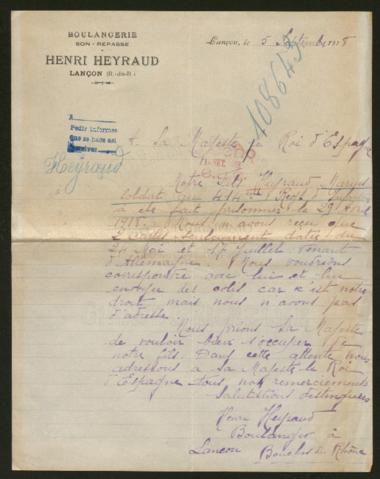 BOULANGERIE
SON - REPASSE
HENRI HEYRAUD
LANÇON (B.-du-R.)
Lançon, le 5 Septembre 1918
108643
A
Pedir informes
Heyraud
A Sa Majesté le Roi d'Espagne
Notre fils Heyraud Marius
soldat au 414me Regt
a été fait prisonnier le 29 Avril
1918. Nous n'avons reçu que
2 datées du
24 Mai et 17 Juillet venant
d'Allemagne. Nous voudrions
correspondre avec lui et lui
envoyer des colis car c'est notre
droit mais nous n'avons pas
d'adresse.
Nous prions Sa Majesté
de vouloir bien s'occuper de
notre fils. Dans cette attente nous
adressons à Sa Majesté le Roi
d'Espagne tous nos remerciements
Salutations distinguées
Henri Heyraud
Boulanger à
Lançon Bouches du Rhône